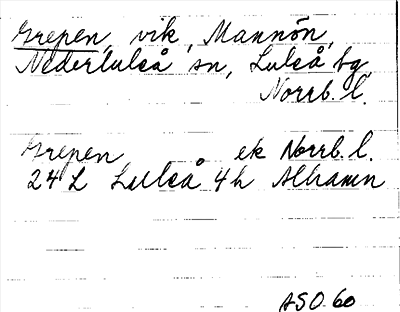 Grepen, vik, Mannön,
Nederluleå sn, Luleå bg
Norrb. l.
Grepen ek Norrb. l.
24 L Luleå 4h Alhamn
ASO 60